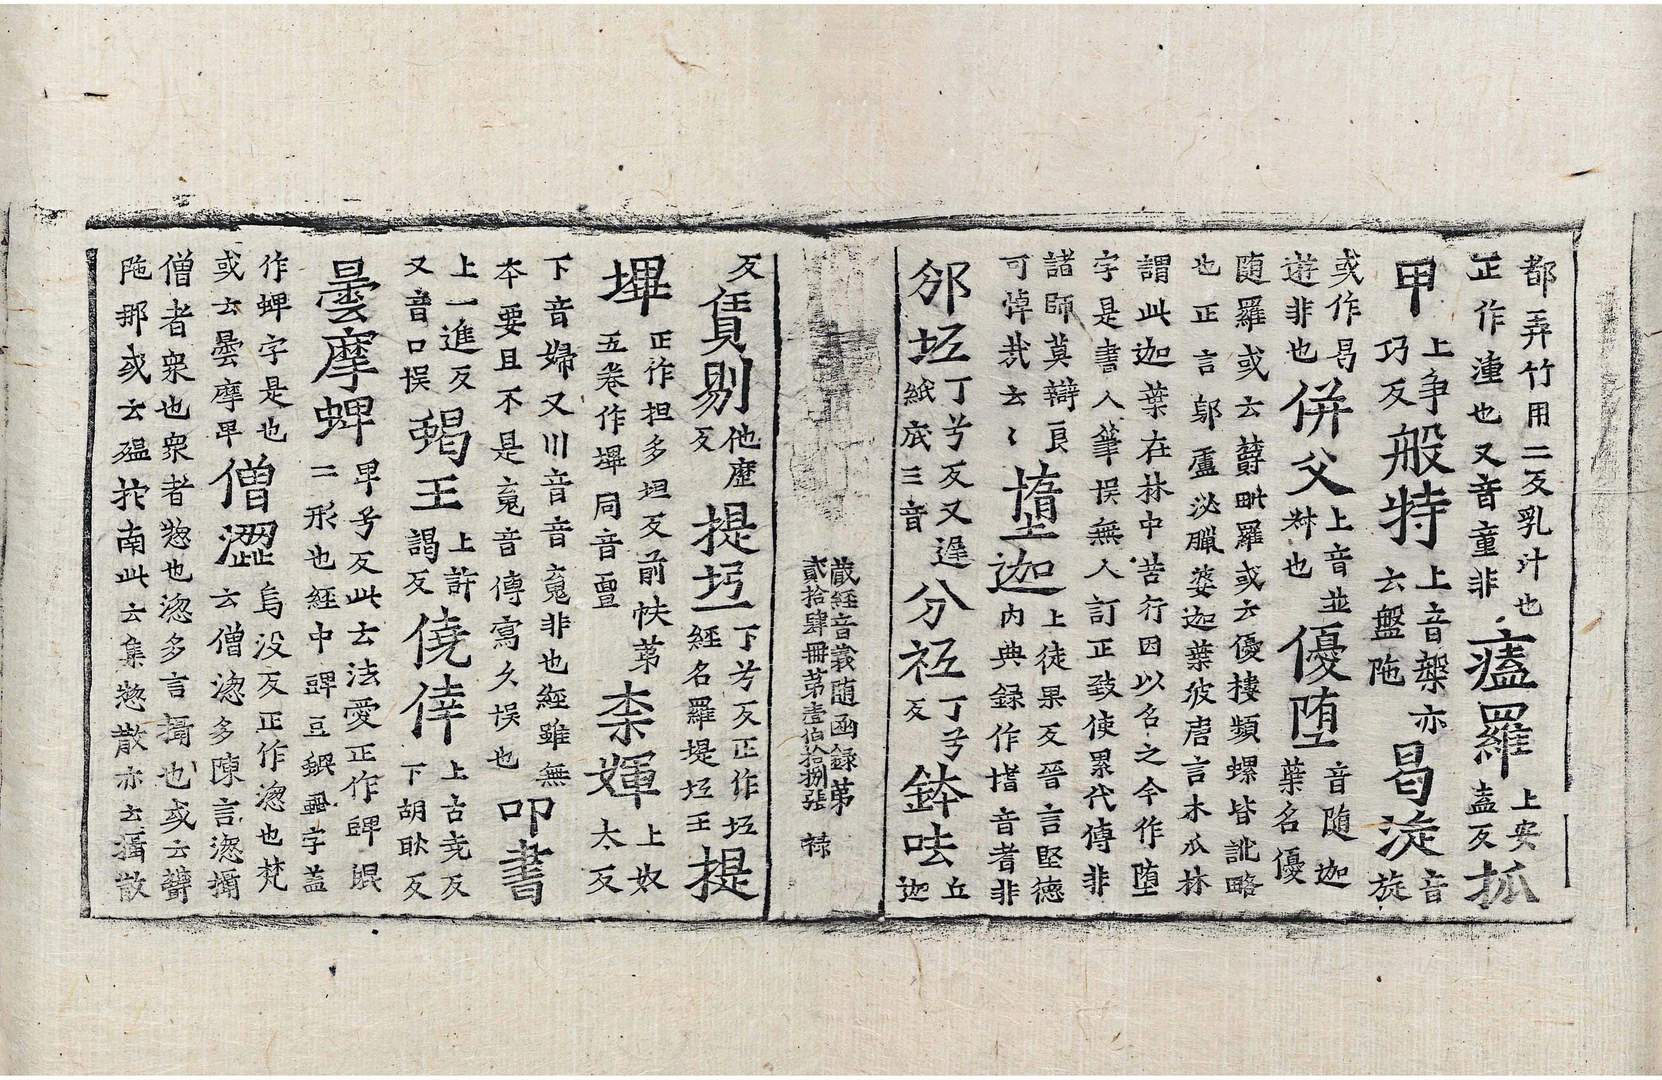 都弄竹用二反乳汁也
正作湩也又音童非
𤸎羅
上安
盍反
抓
甲
上争
巧反
般特
上音槃亦
云盤陁
曷漩
音
旋
或作曷
遊非也
併父
上音並
対也
優堕
音随迦
葉名優
随羅或云欝毗羅或云優樓頻螺皆訛略
也正言鄔盧泌臘婆迦葉彼唐言木瓜林
謂此迦葉在林中苦行因以名之今作堕
字是書人筆悮無人訂正致使累代傳非
諸師莫辯良
可悼㦲去〻
墯迦
上徒果反晉言堅德
内典録作㥩音耆非
邠坻
丁兮反又遅
紙底三音
分袛
丁兮
反
鉢呿
丘
迦
藏經音義随函録第
貳拾肆冊第壹伯拾捌張 祿
反
賃剔
他歷
反
提坘
下兮反正作坻
經名羅堤坻王
提
墠
正作担多坦反前帙第
五卷作墠同音亶
柰煇
上奴
太反
下音婦又川音音䰟非也經雖無
夲要且不是䰟音傳寫久悮也
叩書
上一進反
又音口悮
蝎王
上許
謁反
僥倖
上古尭反
下胡耿反
曇摩蜱
卑兮反此云法愛正作𧌡𧋦
二形也經中𧯅豆蜫𧊚字盖
作蜱字是也
或云曇摩卑
僧澀
烏没反正作淴也梵
云僧淴多陳言淴攝
僧者衆也衆者惣也淴多言攝也或云䪼
陁那或云殟扵南此云集惣散亦云攝散